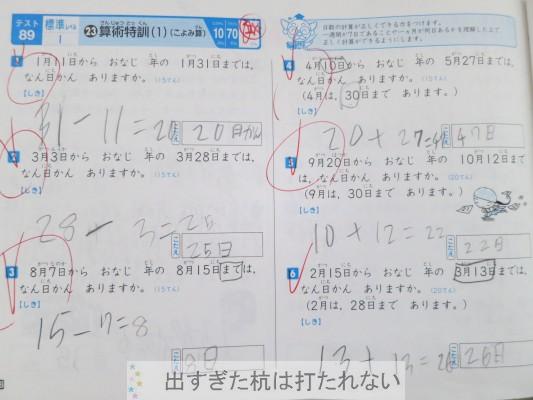 テスト 89
標準レベル 1
23 算術特訓(1)(こよみ算)
10 70
1
1月11日から おなじ 年の 1月31日までは,
なん日かん ありますか。(15てん)
[しき]
31-11=20
こたえ 20日かん
2
3月3日から おなじ 年の 3月28日までは,
なん日かん ありますか。(15てん)
[しき]
28-3=25
こたえ 25日
3
8月7日から おなじ 年の 8月15日までは,
なん日かん ありますか。(15てん)
[しき]
15-7=8
こたえ 8日
日数の計算が正しくできる力をつけます。
一週間が7日であることや一ヵ月が何日あるかを理解した上で
正しく計算ができるようにします。
4
4月10日から おなじ 年の 5月27日までは,
なん日かん ありますか。(15てん)
(4月は, 30日まで あります。)
[しき]
20+27=47
こたえ 47日
5
9月20日から おなじ 年の 10月12日まで
は, なん日かん ありますか。(20てん)
(9月は, 30日まで あります。)
[しき]
10+12=22
こたえ 22日
6
2月15日から おなじ 年の 3月13日までは,
なん日かん ありますか。(20てん)
(2月は, 28日まで あります。)
[しき]
13+13=26
こたえ 26日
出すぎた杭は打たれない